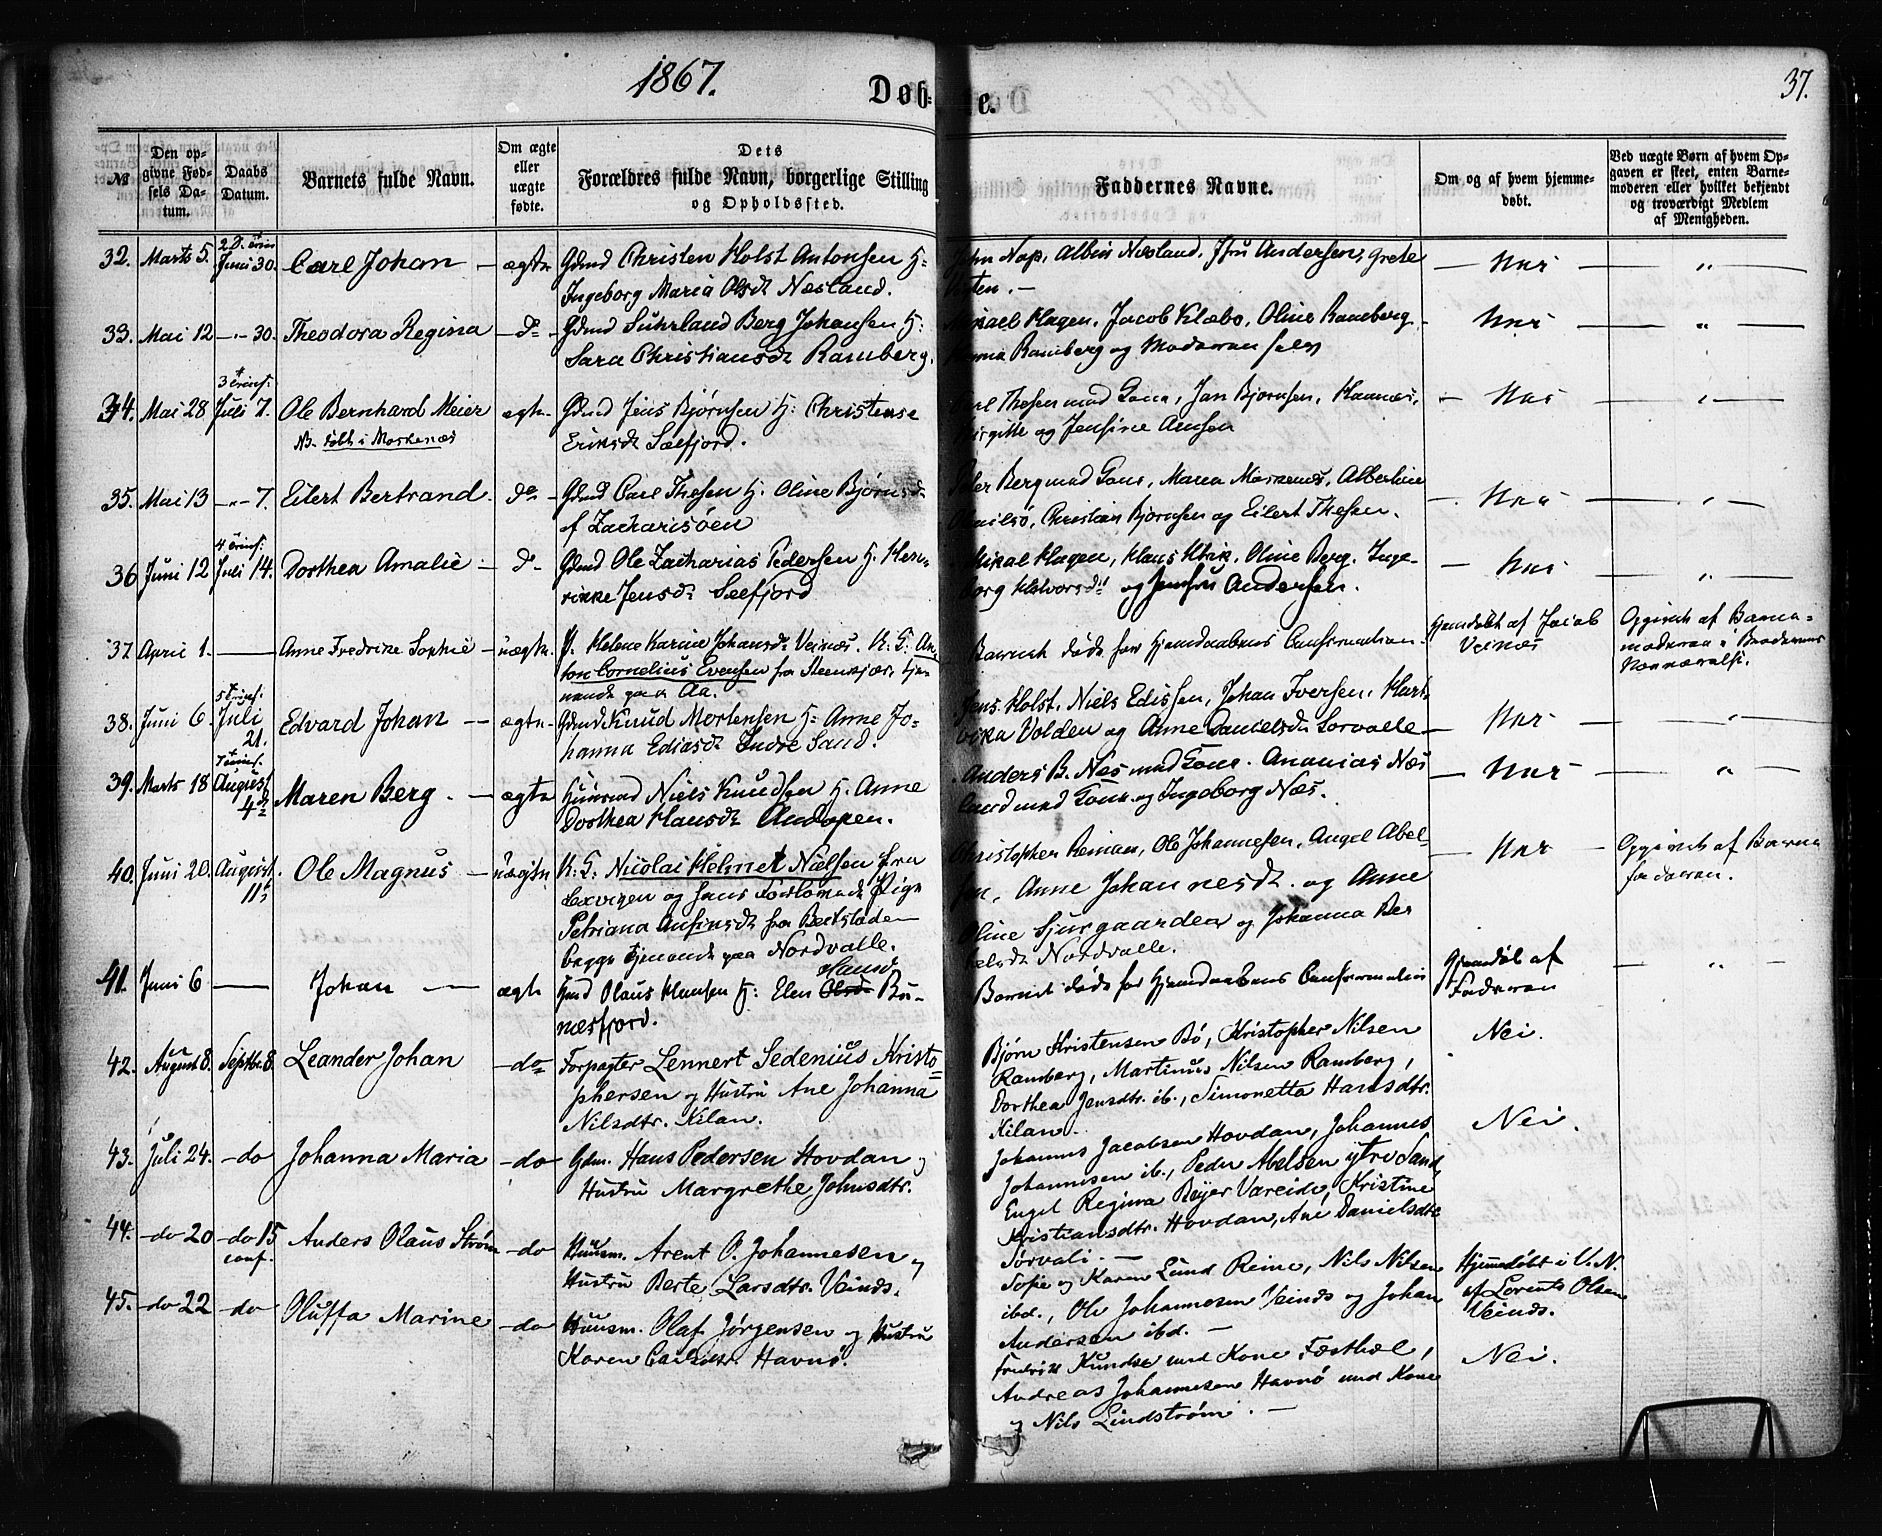 1867.
37.
Døb-
te.
№
Den op-
givne Fød-
sels Da-
tum.
Daabs
Datum.
Barnets fulde Navn.
Om ægte
eller
uægte
fødte.
Dets
Forældres fulde Navn, borgerlige Stilling
og Opholdssted.
Faddernes Navne.
Om og af hvem hjemme-
døbt.
Ved uægte Børn af hvem Op-
gaven er skeet, enten Barne-
moderen eller hvilket bekjendt
og troværdigt Medlem
af Menigheden.
32. Marts 5. Juni 30. Carl Johan — ægte Christen Holst Antonsen H:
Ingeborg Maria Olsdt Næsland.
Albin Næsland, Andersen, Grete
33. Mai 12 —"— 30. Theodora Regina — do — Suhrland Berg Johansen H:
Sara Christiansdt Ramberg.
Hagen, Jacob Klæbo, Oline Ramberg
Ramberg og Moderen selv
34. Mai 28 3 Trinit: Juli 7. Ole Bernhard Meier ægte Jens Bjørnsen H: Christense
NB. født i Moskenæs
Eriksdt Sælfjord.
Thesen med Cone, Jan Bjørnsen, Hannes,
Birgitte og Jensine
35. Mai 13 —"— 7. Eilert Bertrand. do — Carl Thesen H. Oline Bjørnsdt
af Zachariasøen
Berg med Cone, Maren Moskenæs, Albertine
Christian Bjørnsen og Eilert Thesen.
36 Juni 12 4 Trinit: Juli 14. Dorthea Amalie — do — Ole Zacharias Pedersen H. Hen-
rikke Jensdt Sælfjord
Mikal Hagen, Hans Oline Berg. Inge-
borg Halvorsdt og Andersen.
37 April 1. — Anne Fredrike Sophie — uægte. P. Helene Karine Johansdt Veinæs. U. G: An-
ton Cornelius Evensen fra Steenkjær, tje-
nende paa Aa.
Barnet døde før Hjemdaabens Confirmation
Hjemdøbt af Jacob
Veinæs
Opgivet af Barne-
moderen i Moderens
38. Juni 6. 5 Trinit: Juli 21. Edvard Johan — ægte Knud Mortensen H: Anne Jo-
hanna Ediasdt Indre Sand.
Jens Holst, Niels Edissen, Johan Iversen, Hart-
vika Volden og Anne Danielsdt Sørvalle
39. Marts 18 August 4de Maren Berg. — ægte Niels Knudsen H. Anne
Dorthea Hansdt Andopen.
Anders B. Næs med Cone. Ananias Næs
land med Cone og Ingeborg Næs.
40. Juni 20. August. 11te Ole Magnus — uægte. U. G: Nicolai Helmet Nielsen fra
Lexvigen og hans Forlovede Pige
Petriana Ansinsdt fra Beitstaden
begge tjenende paa Nordvalle.
Christopher Reinan, Ole Johannesen, Angel Abel-
sen, Anne Johannesdt. og Anne
Oline Sjursgaarden og Johanna Ber
telsdt Nordvalle.
Opgivet af Barne
faderen.
41. Juni 6 — Johan — ægte Olaus Hansen H: Elen Olsdt Hansdt Bu-
næsfjord.
Barnet døde før Hjemdaabens Confirmation
Hjemdøbt af
Faderen
42. August 8. Septbr 8. Leander Johan — do Forpagter Lennert Sedenius Kristo-
phersen og Hustru Ane Johanna
Nilsdtr. Kilan.
Bjørn Kristensen Bø, Kristopher Nilsen
Ramberg, Martinus Nilsen Ramberg,
Dorthea Jensdtr. ib., Simonetta Hansdtr.
Kilan.
Nei.
43. Juli 24. — do Johanna Maria — do Gdm. Hans Pedersen Hovdan og
Hustru Margrethe Johnsdtr.
Johannes Jacobsen Hovdan, Johannes
Johannesen ib., Peder Abelsen ytre Sand,
Engel Regina Beyer Vareide, Kristine
Kristiansdtr. Hovdan, Ane Danielsdtr
Sørvali. —
Nei.
44. — do 20 — do 15 conf. Anders Olaus Strøm — do Huusm. Arent O. Johannesen og
Hustru Berte Larsdtr. Veinæs.
Sofie og Karen Lund Reine, Nils Nilsen
ibd., Ole Johannesen Veinæs og Johan
Andersen ibd. —
Hjemmedøbt i V. N.
af Lorents Olsen
Veinæs.
45. — do 22 — do Oluffa Marine — do Huusm. Olaf Jørgensen og Hustru
Karen Havnø.
Fredrik Kundsen med Kone Festhæl,
Andreas Johannesen Havnø med Kone
og Nils Lindstrøm. —
Nei.